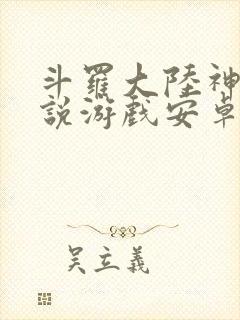 斗羅大陸神
說游戲安卓
吴立義